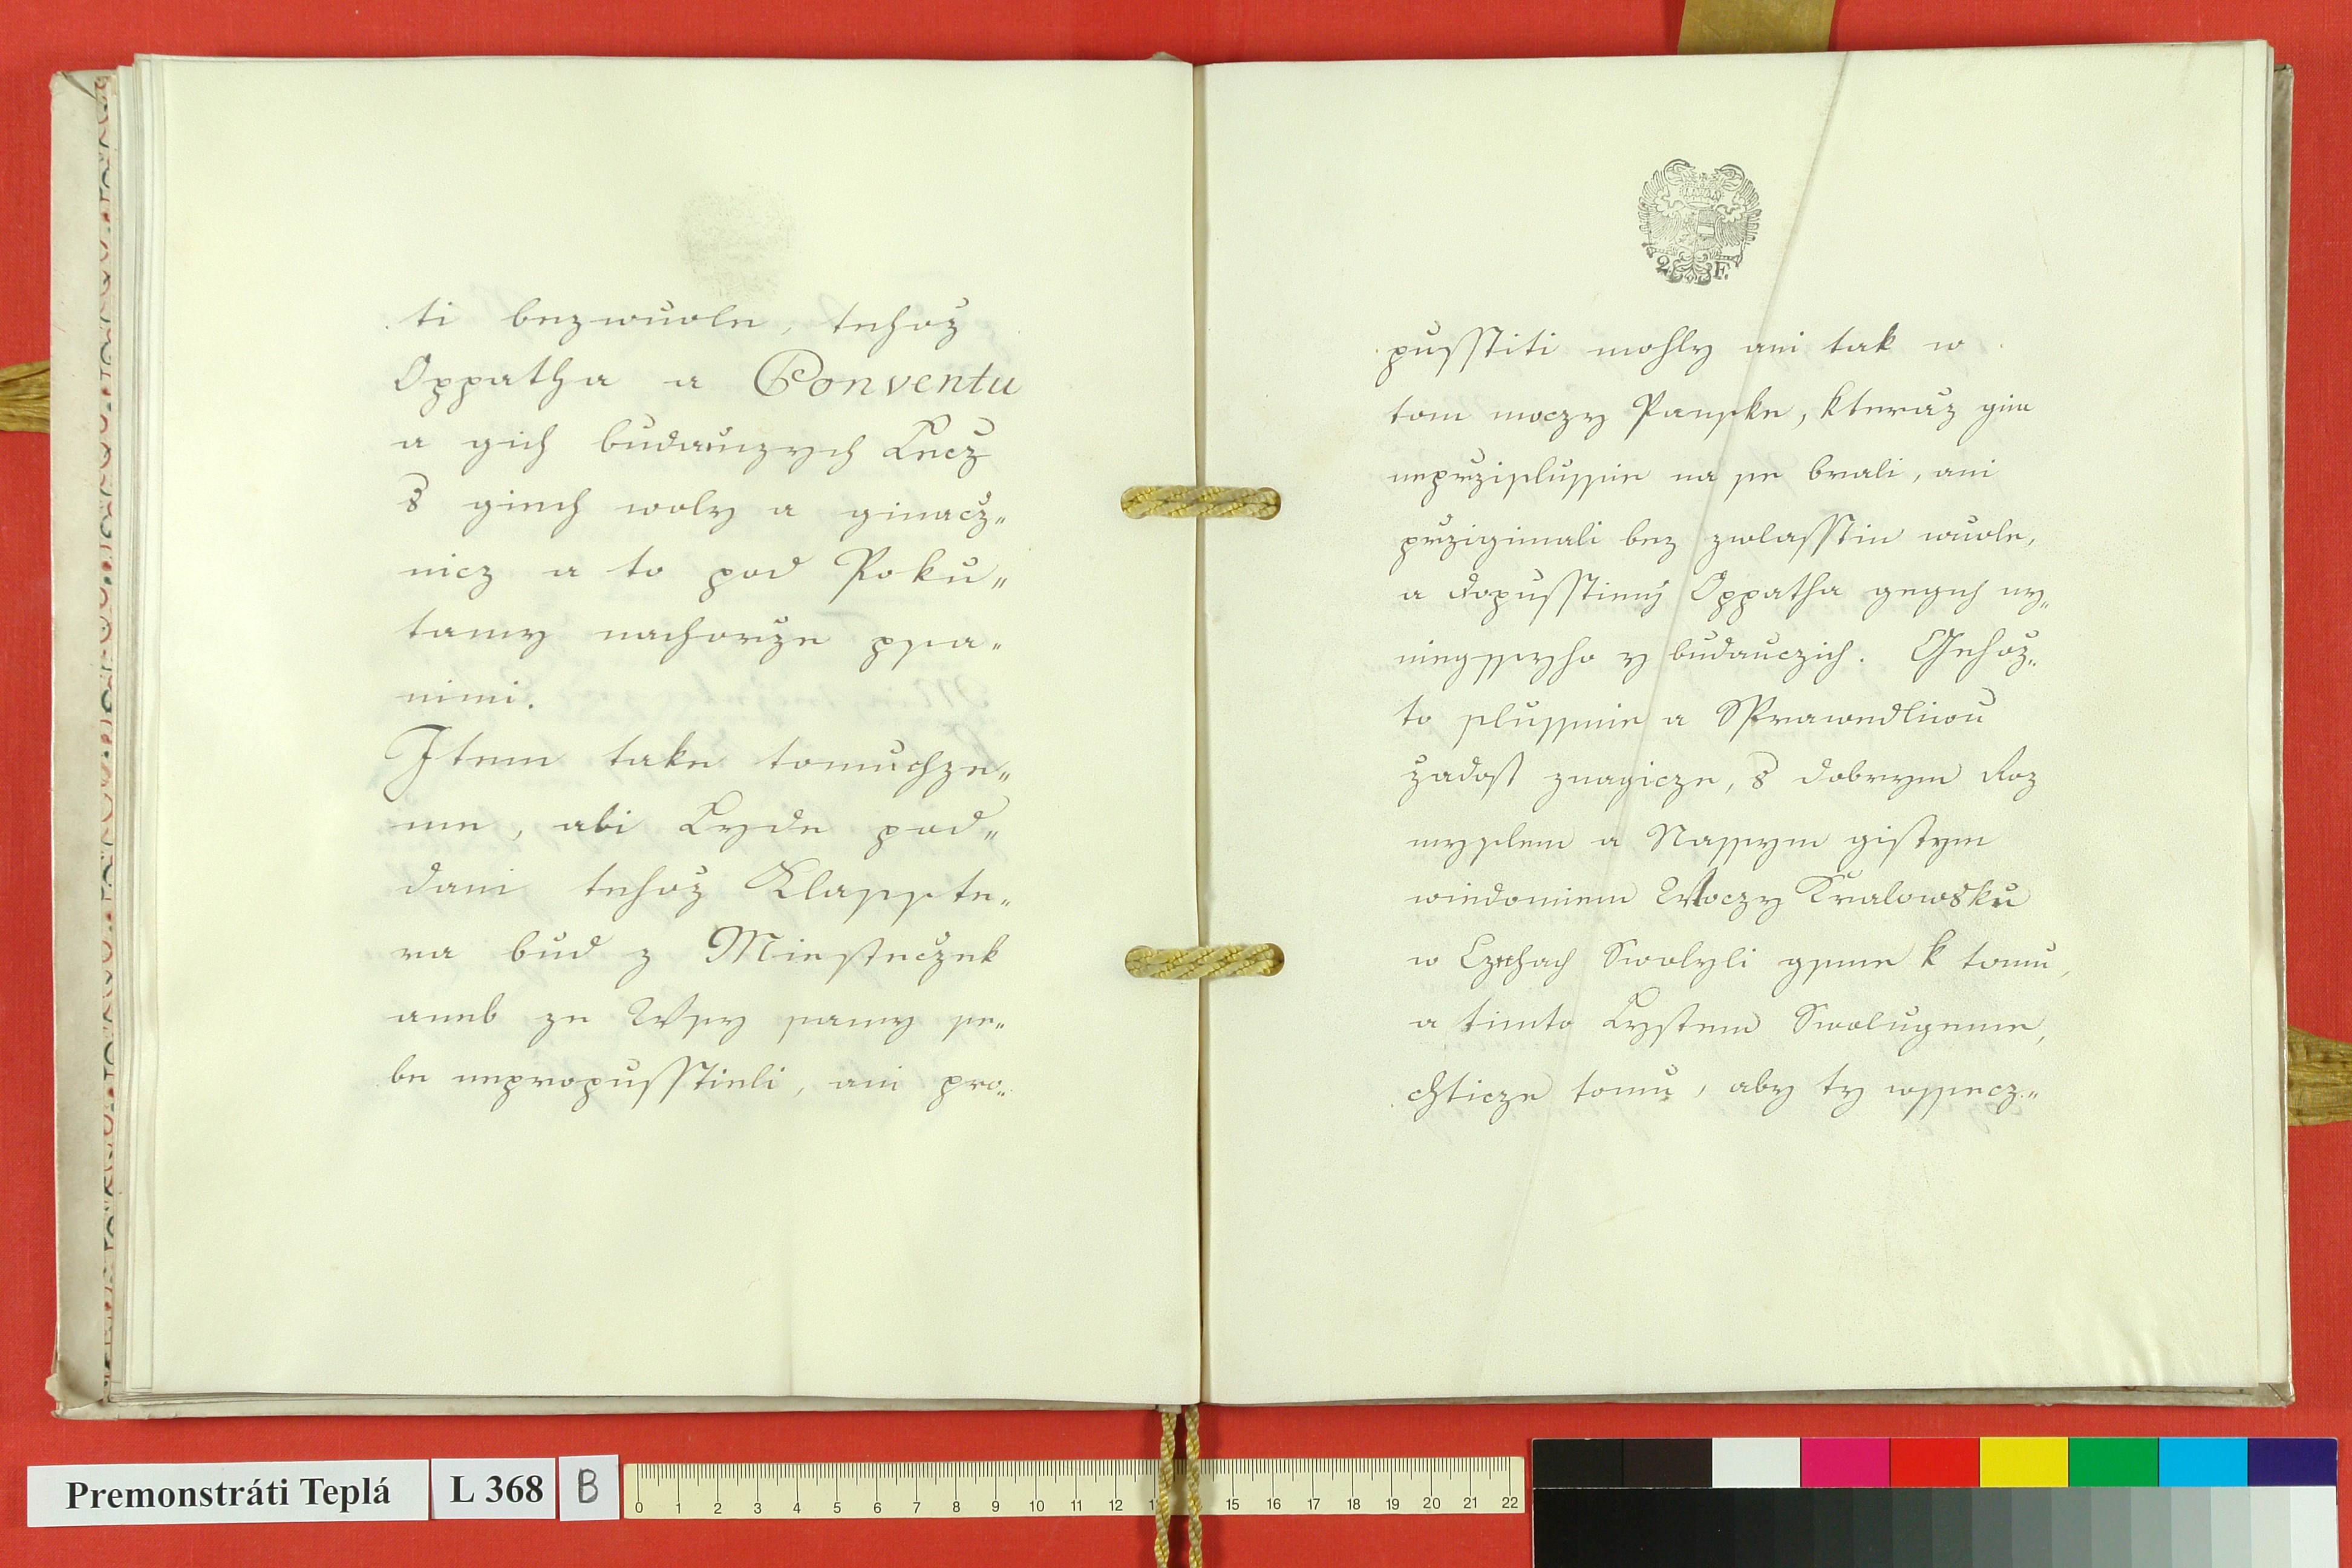 ti bezwuole, tehoż
Oppatha a Conventu
a gich budauczych Lecż
s giech woly a ginacż„
nicz a to pod Poku„
tamy nachorże psa„
nimi.
Item take tomuchze„
me, abi Lyde pod„
dani tehoż Klasste„
ra bud z Miesteczek
aneb ze Wsy samy se„
be nepropusstieli, ani pro„
pusstiti mohly ani tak w
tom moczy Panske, kteraż gim
neprzislussie na se brali, ani
przigimali bez zwlasstie wuole,
a dopusstieny Oppatha gegich ny„
niegssyho y budauczich. Gehoż„
to slussnie a Sprawedliwu
żadost znagicze, s dobrym Roz
myslem a Nassym gistym
wiedomiem Moczy Kralowsku
w Czechach Swolyli gsme k tomu,
a timto Lystem Swolugeme,
chticze tomu, aby ty wssecz„
Q F.
Premonstráti Teplá L 368 B
0 1 2 3 4 5 6 7 8 9 10 11 12 13 15 16 17 18 19 20 21 22